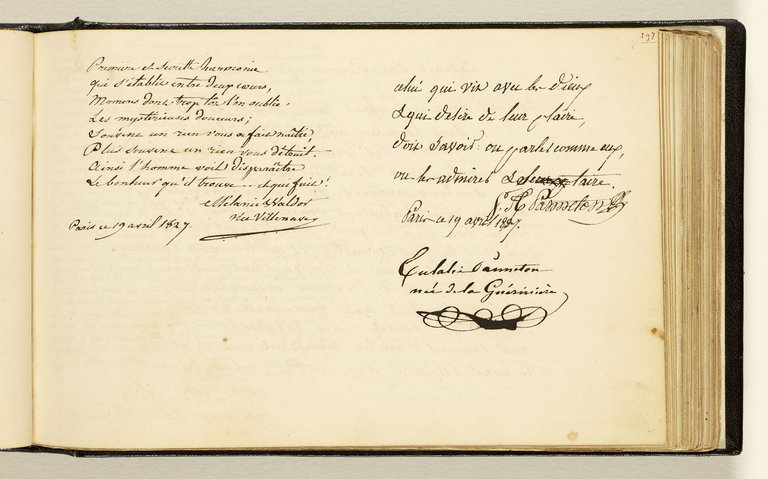 197
Premiere et Secrette harmonie
qui s'établis entre deux cœurs,
Momens dont trop tôt l'on oublie
Les mystérieuses douceurs;
Souvent un rien vous a fait naître,
Plus souvent un rien vous détruit.
Ainsi l'homme voit disparaître
Le bonheur qu'il trouve... et qui fuit!
Mélanie Waldor
née Villenave
Paris ce 19 avril 1827.
celui qui vis avec les Dieux
& qui desire de leur plaire,
doit savoir ou parler comme eux,
ou les admirer & taire.
Paris ce 19 avril 1827.
Eulalie Panneton
née de la Guérinière